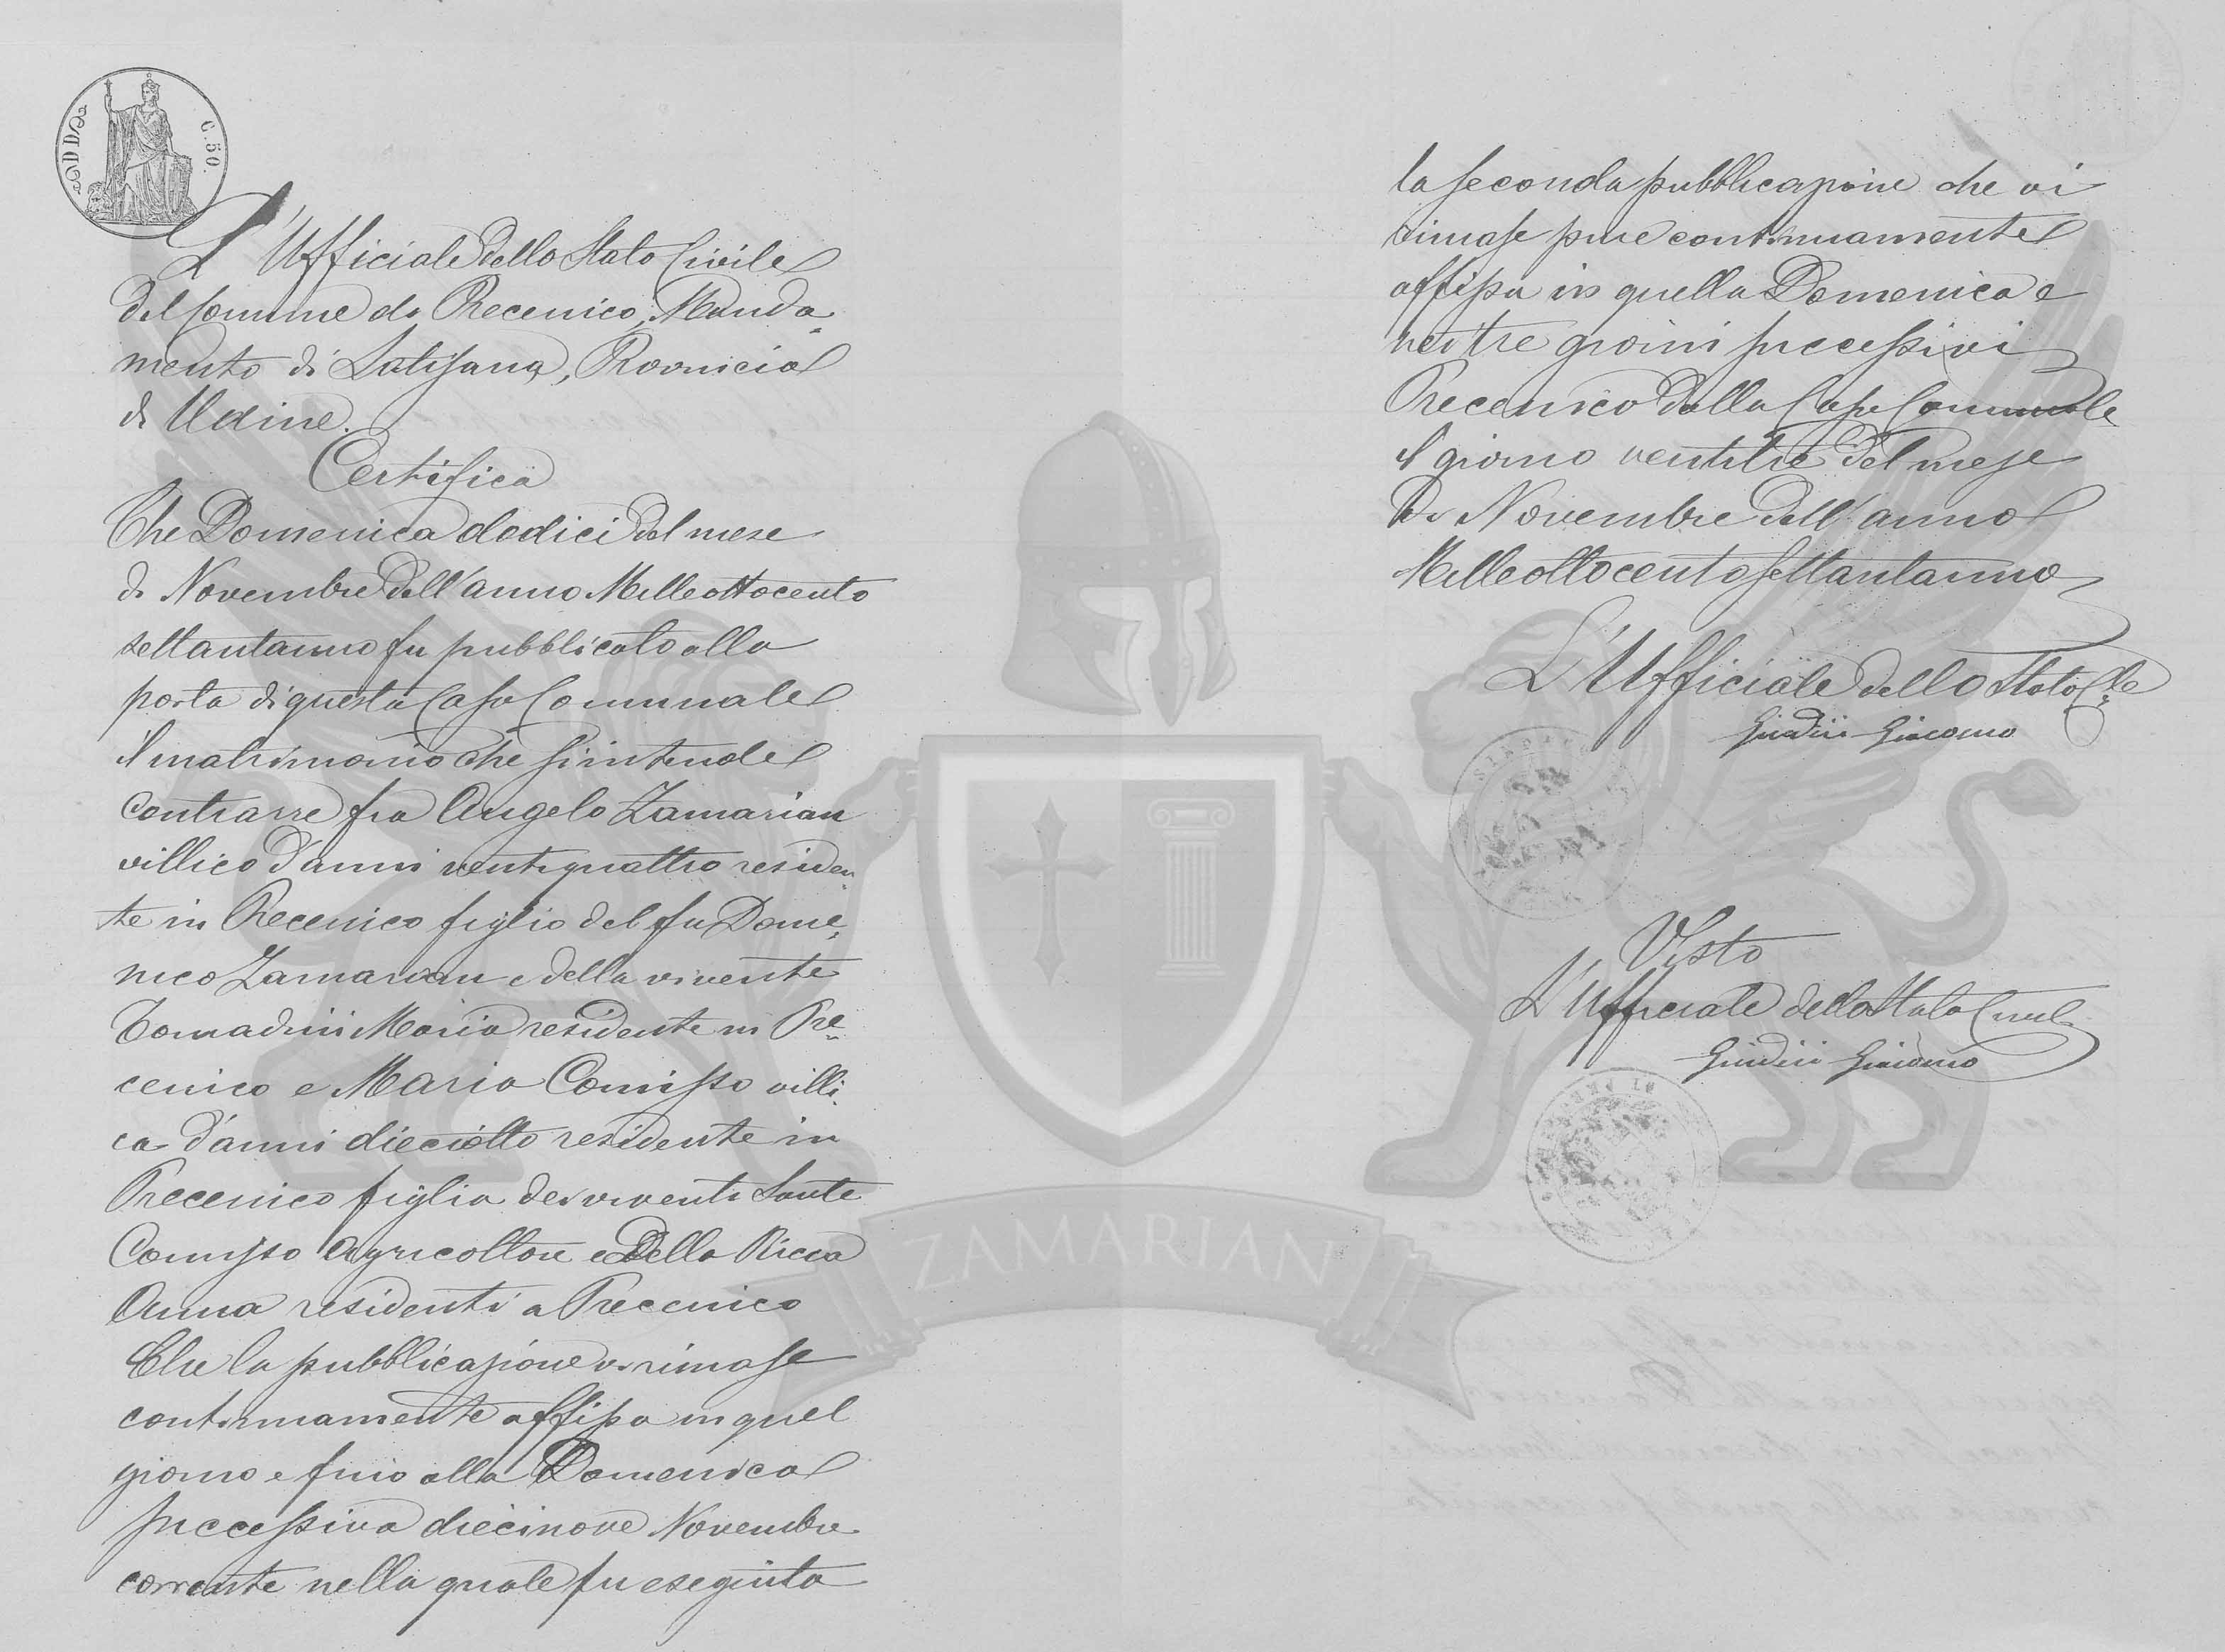 C. 50.
L'Ufficiale dello Stato Civile
del Comune di Precenico, Manda-
mento di Latisana, Provincia
di Udine.
Certifica
Che Domenica dodici del mese
di Novembre dell'anno Milleottocento
settantauno fu pubblicato alla
porta di questa Casa Comunale
il matrimonio che si intende
contrarre fra Angelo Zamarian
villico d'anni ventiquattro residen-
te in Precenico figlio del fu Dome-
nico Zamarian e della vivente
Tomadini Maria residente in Pre-
cenico e Maria Comisso villi-
ca d'anni dieciotto residente in
Precenico figlia dei viventi Sante
Comisso Agricoltore e Della Ricca
Anna residenti a Precenico
Che la pubblicazione vi rimase
continuamente affissa in quel
giorno e fino alla Domenica
successiva diecinove Novembre
corrente nella quale fu eseguita
la seconda pubblicazione che vi
rimase pure continuamente
affissa in quella Domenica e
nei tre giorni successivi
Precenico dalla Casa Comunale
il giorno ventitre del mese
di Novembre dell'anno
Milleottocentosettantauno
L'Ufficiale dello Stato C.le
Giudici Giacomo
Visto
L'Ufficiale dello Stato Civile
Giudici Giacomo
ZAMARIAN